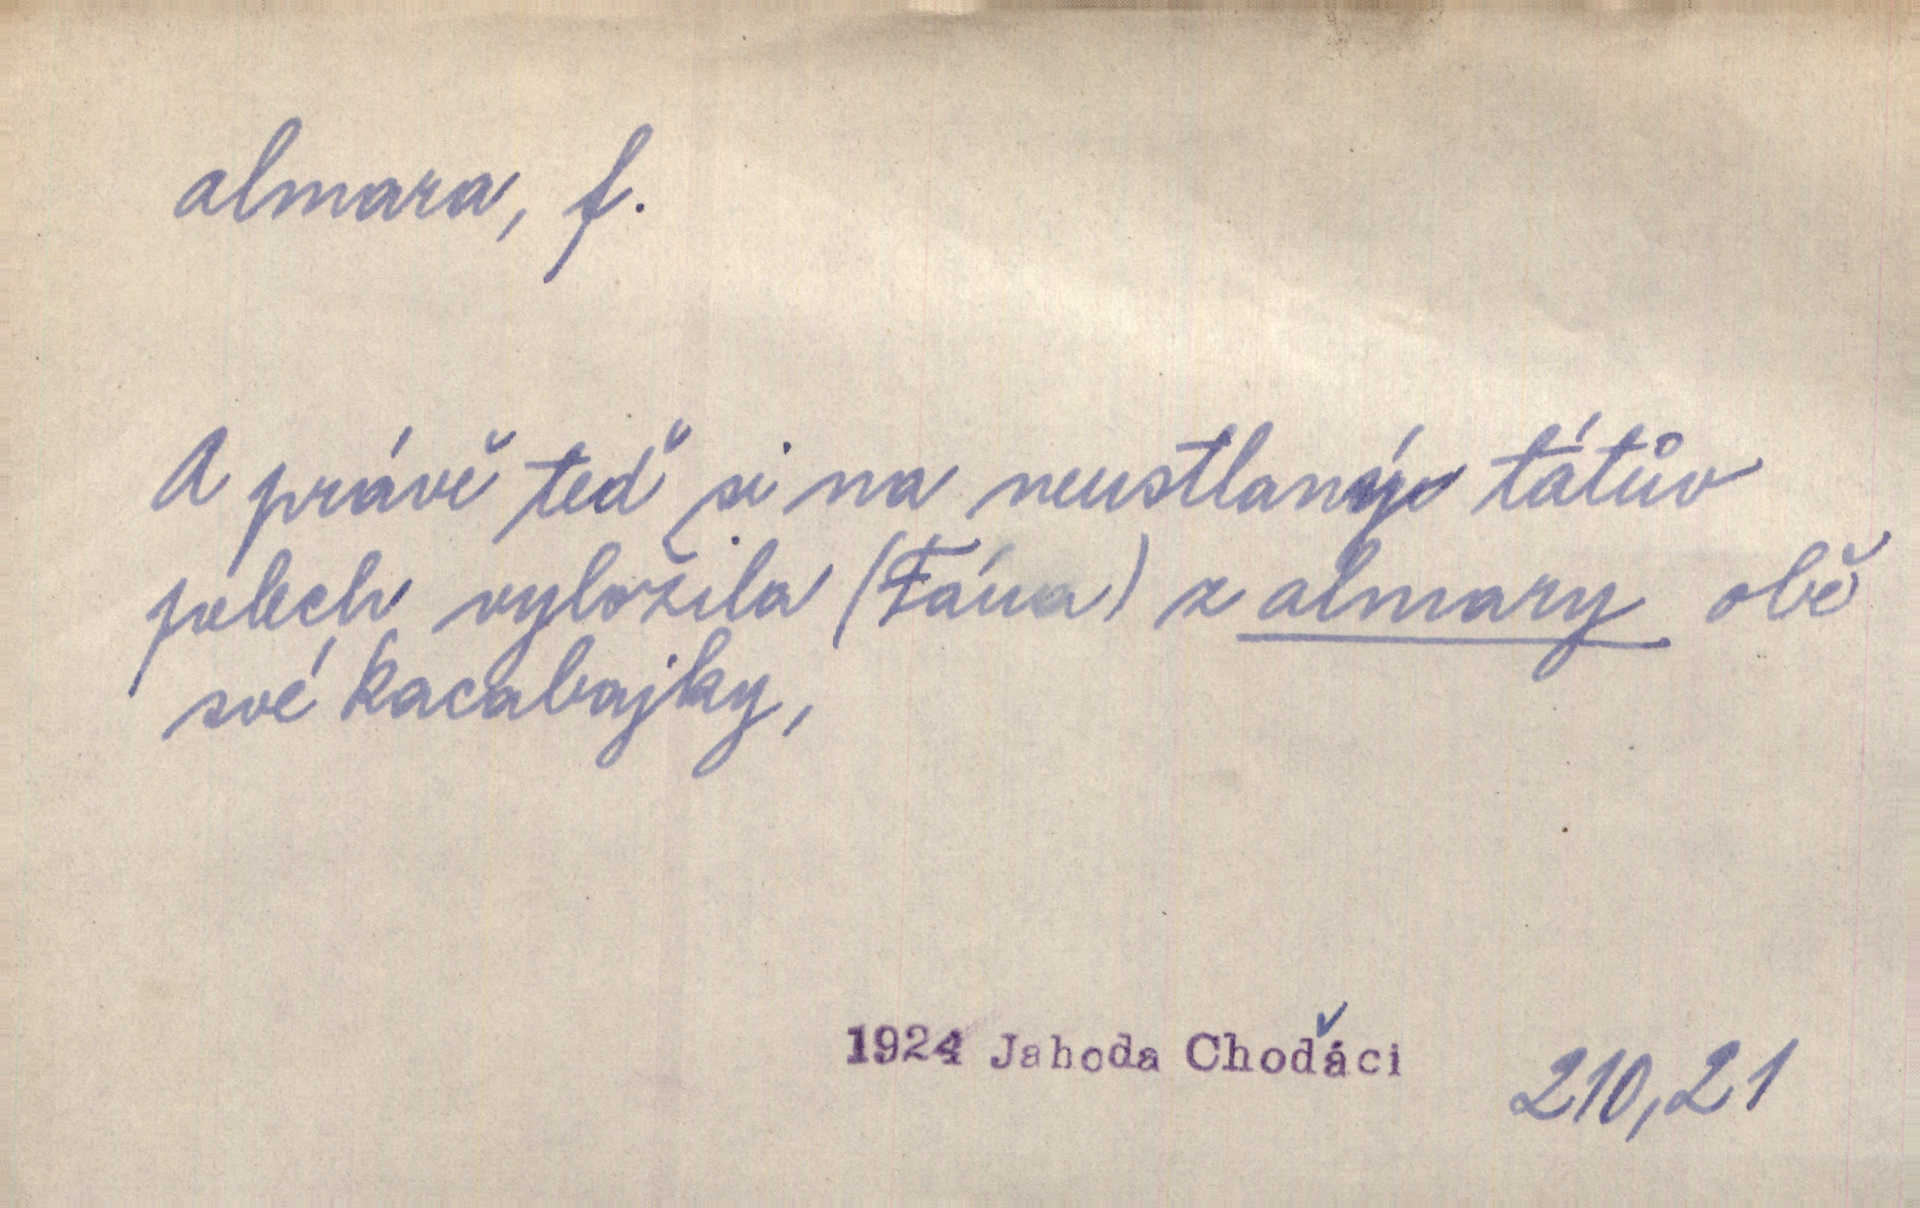 almara, f.
A právě teď si na neustlaný tátův
pelech vyložila (Fána) z almary obě
své kacabajky,
1924 Jahoda Choďáci 210,21